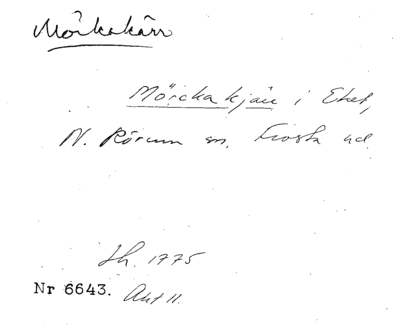 Mörkakärr
Mörckakjärr i Ekef,
N. Rörum sn. Frosta hd
Sh. 1775
Nr 6643. Akt 11.